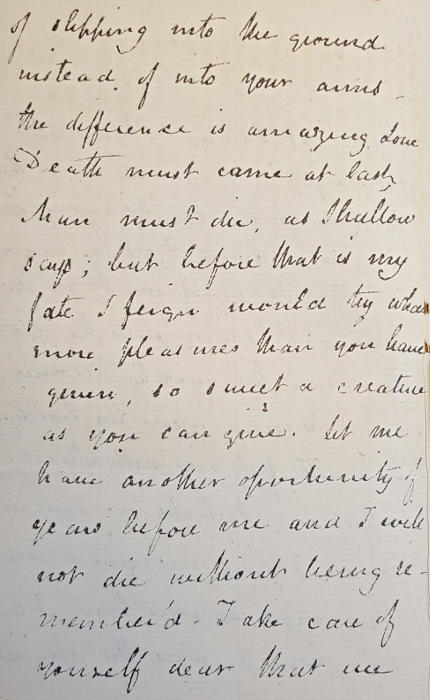 of slipping into the ground
instead of into your arms -
the difference is amazing Love
Death must came at last,
Man must die, as Shallow
says; but before that is my
fate I feign would try what
more pleasures than you have
given, so sweet a creature
as you can give. let me
have another oportunity of
years before me and I will
not die without being re-
member'd - Take care of
yourself dear that we